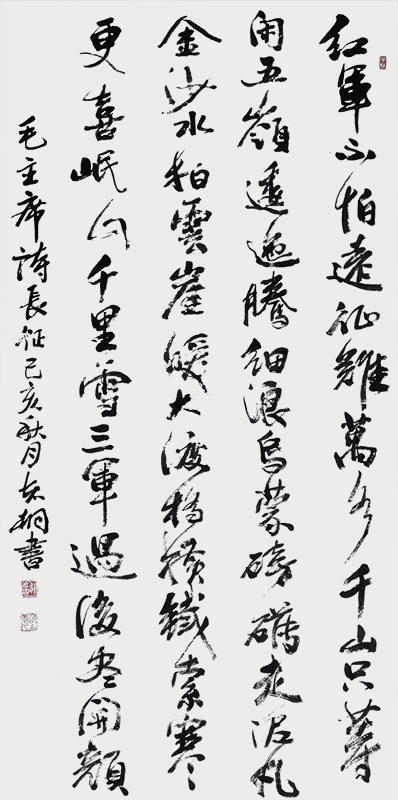 紅軍不怕遠征難萬水千山只等
閑五嶺逶迤騰細浪烏蒙磅礴走泥丸
金沙水拍雲崖暖大渡橋橫鐵索寒
更喜岷山千里雪三軍過後尽開顏
毛主席詩長征己亥秋月桐書